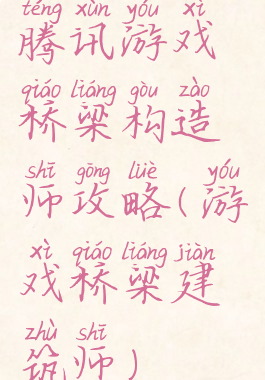 téng xùn yóu xì
腾讯游戏
qiáo liáng gòu zào
桥梁构造
shī gōng lüè yóu
师攻略(游
xì qiáo liáng jiàn
戏桥梁建
zhù shī
筑师)